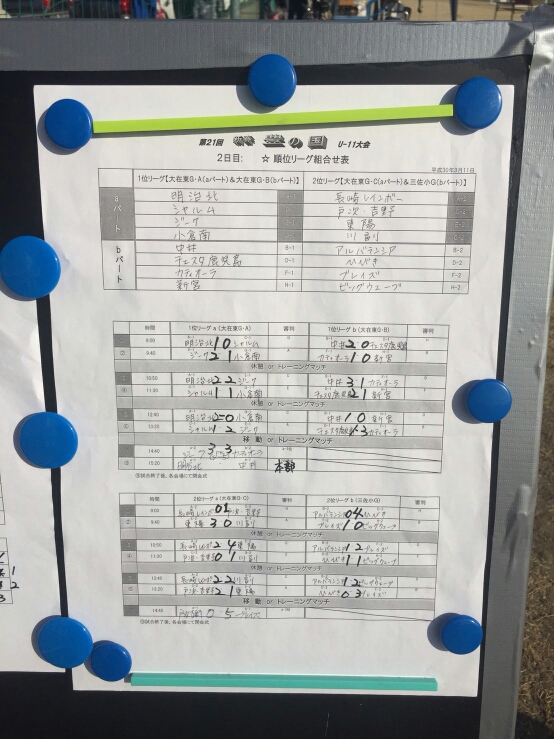 第21回 豊の国 U-11大会
2日目: ☆ 順位リーグ組合せ表
平成30年3月11日
1位リーグ【大在東G・A(aパート)&大在東G・B(bパート)】 2位リーグ【大在東G・C(aパート)&三佐小G(bパート)】
aパート
明治北 長崎レインボー
シャルム 戸次・吉野
ジーク 東陽
小倉南 川副
bパート
中井 B-1 アルバランシア B-2
チェスタ鹿児島 D-1 ひびき D-2
カティオーラ F-1 ブレイズ F-2
新宮 H-1 ビッグウェーブ H-2
時間 1位リーグa(大在東G・A) 審判 1位リーグb(大在東G・B) 審判
9:00 明治北 1 0 シャルム 中井 2 0 チェスタ鹿児島
② 9:40 ジーク 2 1 小倉南 カティオーラ 1 0 新宮
休憩 or トレーニングマッチ
10:50 明治北 2 2 ジーク 中井 3 1 カティオーラ
④ 11:30 シャルム 1 1 小倉南 チェスタ鹿児島 2 1 新宮
休憩 or トレーニングマッチ
12:40 明治北 5 0 小倉南 中井 1 0 新宮
13:20 シャルム 1 2 ジーク チェスタ鹿児島 3 カティオーラ
移動 or トレーニングマッチ
14:40 ジーク 3 3 カティオーラ
15:20 明治北 中井 本部
時間 2位リーグa(大在東G・C) 審判 2位リーグb(三佐小G) 審判
9:00 長崎レインボー 0 1 戸次・吉野 アルバランシア 0 4 ひびき
② 9:40 東陽 3 0 川副 ブレイズ 1 0 ビッグウェーブ
休憩 or トレーニングマッチ
10:50 長崎レインボー 2 4 東陽 アルバランシア 1 2 ブレイズ
④ 11:30 戸次・吉野 0 1 川副 ひびき 1 1 ビッグウェーブ
休憩 or トレーニングマッチ
12:40 長崎レインボー 2 2 川副 アルバランシア 2 ビッグウェーブ
13:20 戸次・吉野 2 1 東陽 ひびき 0 3 ブレイズ
移動 or トレーニングマッチ
14:40 0 5 ブレイズ